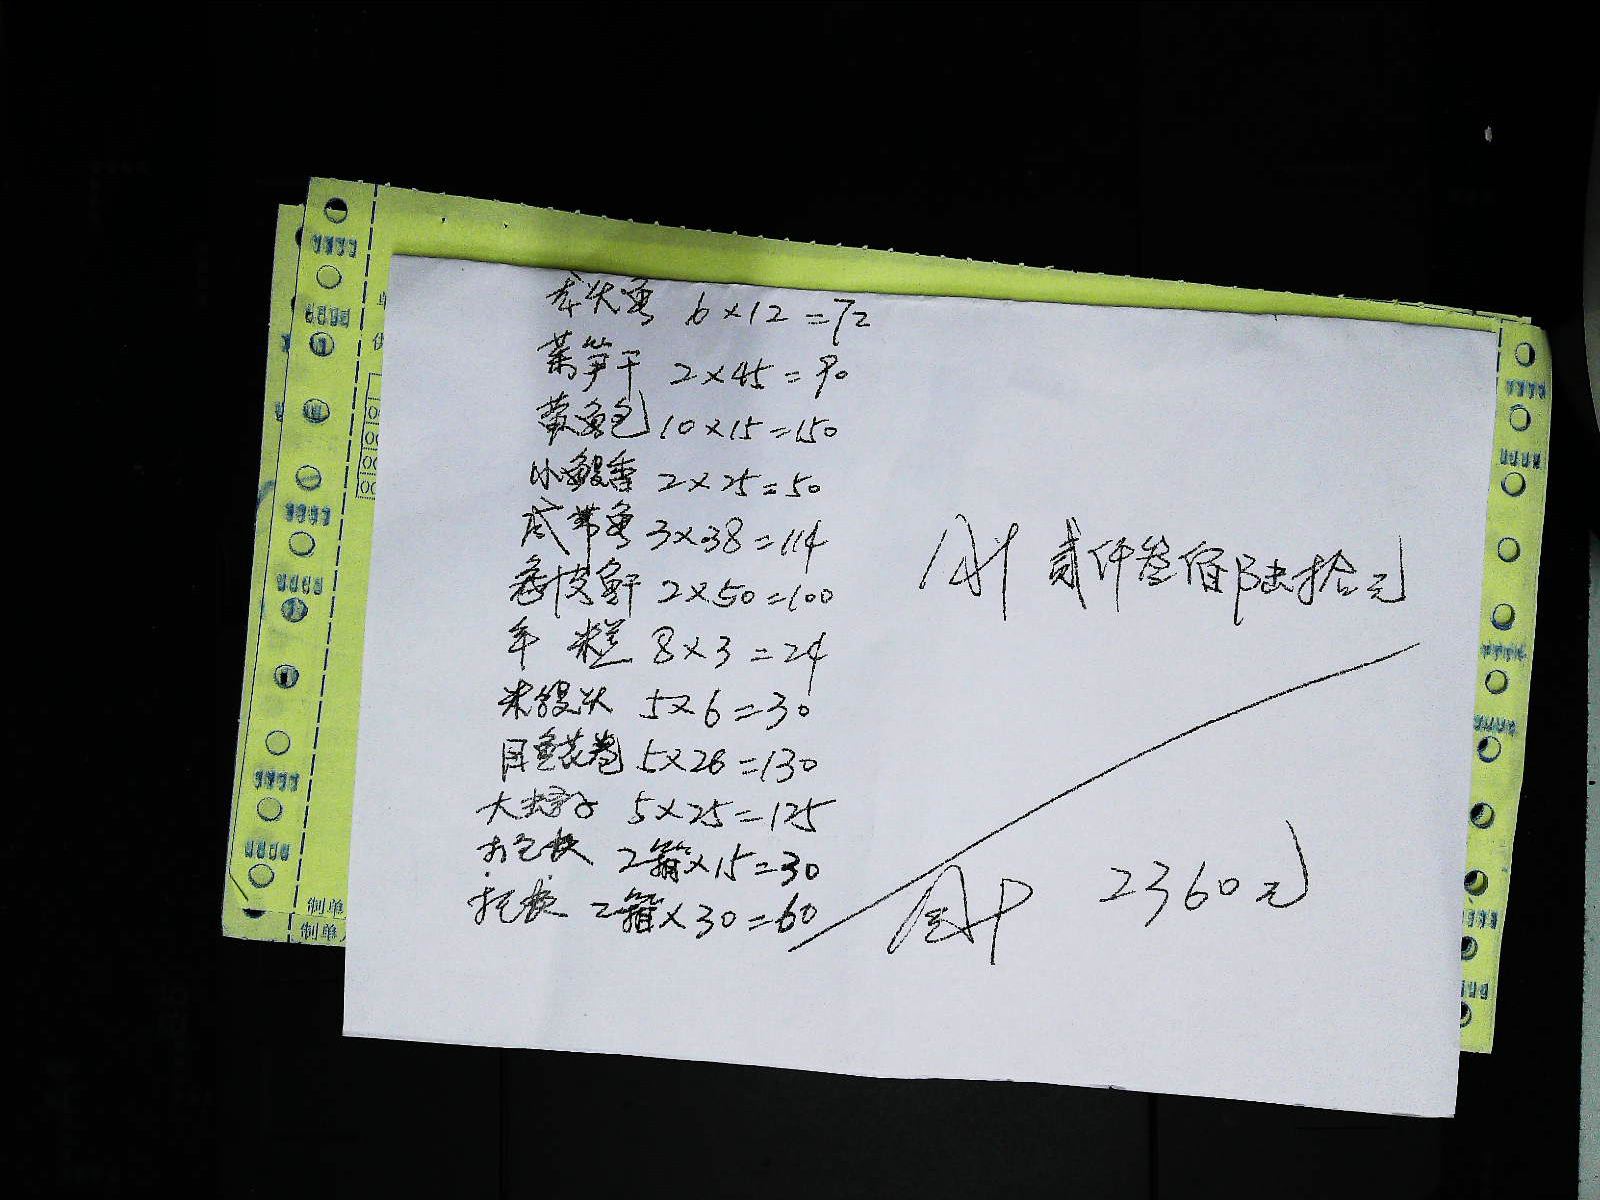 龙头鱼 6×12=72
菜笋干 2×45=90
黄鱼包 10×15=150
小鳗香 2×25=50
带鱼 3×38=114
皮鱼干 2×50=100
年糕 8×3=24
米馒头 5×6=30
目鱼花卷 5×26=130
大 5×25=125
2箱×15=30
2箱×30=60
合计 贰仟叁佰陆拾元
合计 2360元
制单
制单